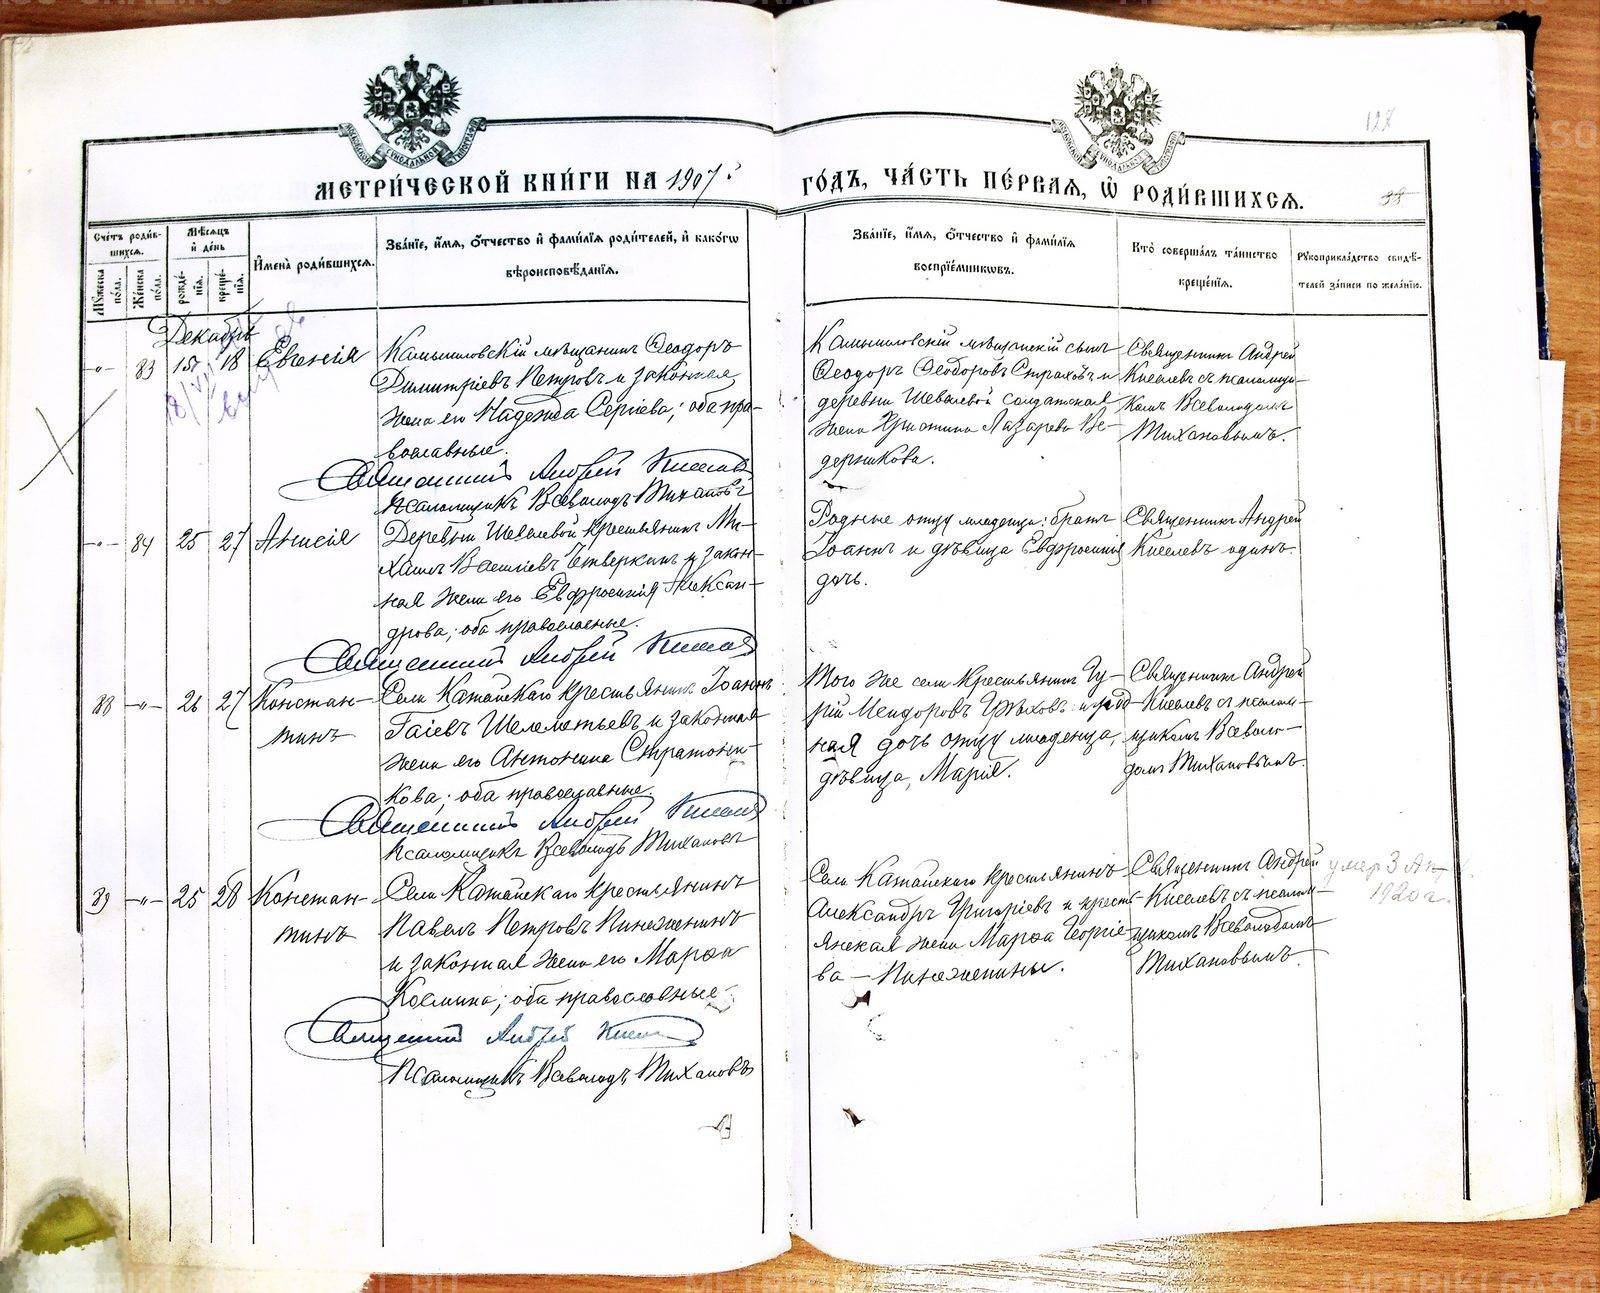 МЕТРИ́ЧЕСКОЙ КНИ́ГИ НА 1907 й
ГО́ДЪ, ЧА́СТЬ ПЕ́РВАѦ, Ѡ҆ РОДИ́ВШИХСѦ.
128
Сче́тъ роди́в-
шихсѧ.
Мꙋ́жеска по́ла.
Же́нска по́ла.
Мѣ́сѧцъ
и҆ де́нь
рожде́-
нїѧ.
креще́-
нїѧ.
И҆мена̀ роди́вшихсѧ.
Зва́нїе, и҆́мѧ, ѻ҆́тчество и҆ фами́лїѧ роди́телей, и҆ како́гѡ
вѣроисповѣ́данїѧ.
Зва́нїе, и҆́мѧ, ѻ҆́тчество и҆ фами́лїѧ
воспрїе́мникѡвъ.
Кто̀ соверша́лъ та́инство
креще́нїѧ.
Рꙋкоприкла́дство свидѣ́-
телей за́писи по жела́нїю.
Декабрь
-„- 83 15 18 Евгенія
Камышловскій мѣщанинъ Ѳеодоръ
Димитріевъ Петровъ и законная
жена его Надежда Сергіева; оба пра-
вославные.
Священникъ Андрей Киселевъ
Псаломщикъ Всеволодъ Тихановъ
Камышловскій мѣщанскій сынъ
Ѳеодоръ Ѳеодоровъ Страховъ и
деревни Шевелевой солдатская
жена Христина Лазарева Ве-
дерникова.
Священникъ Андрей
Киселевъ съ псаломщи-
комъ Всеволодомъ
Тихановымъ.
-„- 84 25 27 Анисія
Деревни Шевелевой крестьянинъ Ми-
хаилъ Васильевъ Четверкинъ и закон-
ная жена его Евфросинія Алексан-
дрова; оба православные.
Священникъ Андрей Киселевъ
Родные отцу младенца: братъ
Іоаннъ и дѣвица Евфросинія
дочь.
Священникъ Андрей
Киселевъ одинъ.
88 -„- 26 27 Констан-
тинъ
Села Катайскаго крестьянинъ Іоаннъ
Гаіевъ Шелементьевъ и законная
жена его Антонина Стратони-
кова; оба православные.
Священникъ Андрей Киселевъ
Псаломщикъ Всеволодъ Тихановъ
Того же села крестьянинъ Гу-
рій
ная дочь отцу младенца,
дѣвица, Марія.
Священникъ Андрей
Киселевъ съ псалом-
щикомъ Всеволо-
домъ Тихановымъ.
89 -„- 25 28 Констан-
тинъ
Села Катайскаго крестьянинъ
Павелъ Петровъ Пинженинъ
и законная жена его Марѳа
Космина; оба православные.
Священникъ Андрей Киселевъ
Псаломщикъ Всеволодъ Тихановъ
Села Катайскаго крестьянинъ
Александръ Григоріевъ и кресть-
янская жена Марѳа Георгіе-
ва — Пинженины.
Священникъ Андрей
Киселевъ съ псалом-
щикомъ Всеволодомъ
Тихановымъ.
умер 3 Ап-
1920 г.